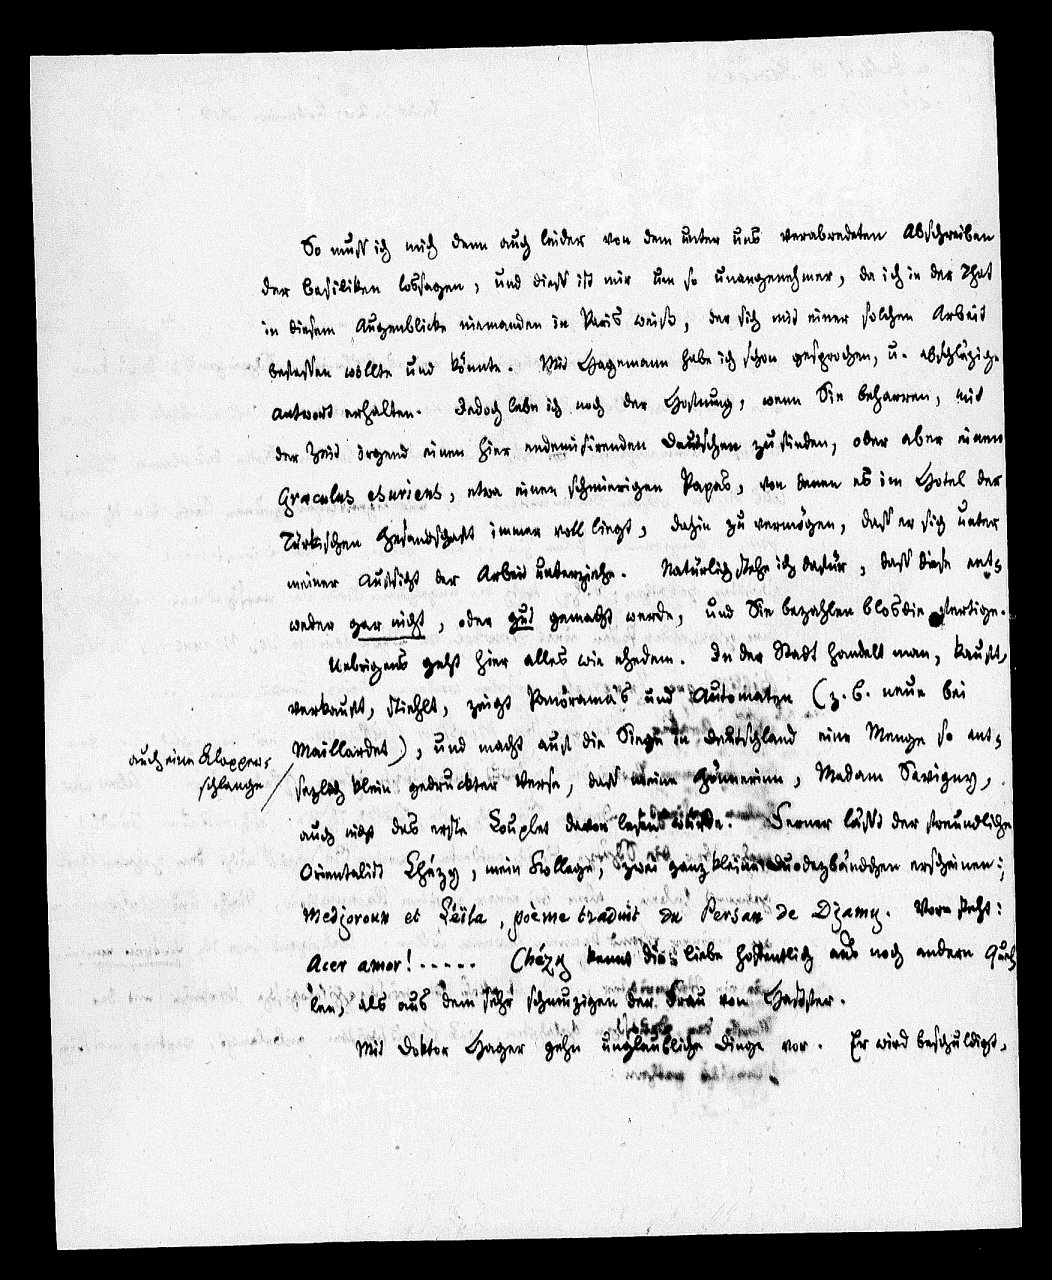 So muß ich mich denn auch leider von dem unter uns verabredeten Abschreiben
der Basiliken lossagen, und dieß ist mir um so unangenehmer, da ich in der That
in diesem Augenblicke niemanden in Paris weiß, der sich mit einer solchen Arbeit
befassen wollte und könnte. Mit Hagemann habe ich schon gesprochen, u. abschlägige
Antwort erhalten. Jedoch lebe ich noch der Hofnung, wenn Sie beharren, mit
der Zeit irgend einen hier endemisirenden Deutschen zu finden, oder aber einen
Graeculus esuriens, etwa einen schmierigen Papas, von denen es im Hotel der
Türkischen Gesandschaft immer voll liegt, dahin zu vermögen, daß er sich unter
meiner Aufsicht der Arbeit unterziehe. Natürlich stehe ich dafür, daß diese ent-
weder gar nicht, oder gut gemacht werde, und Sie bezahlen blos die fertige.
Uebrigens geht hier alles wie ehedem. In der Stadt handelt man, kauft,
verkauft, stiehlt, zeigt Panorama's und Automaten (z. B. neue bei
auch eine Klapper-
schlange
Maillardet), und macht auf die Siege in Deutschland eine Menge so ent-
sezlich klein gedruckter Verse, daß meine Gönnerinn, Madam Savigny,
auch nicht das erste Couplet davon lesen würde. Ferner läßt der freundliche
Orientalist Chézy, mein Kollege, zwei ganz kleine Duodezbändchen erscheinen:
Medjnoun et Leïla, poème traduit du Persan de Djamy. Vorn steht:
Acer amor!..... Chézy kennt die Liebe hoffentlich aus noch andern Quel-
len, als aus dem sehr schmuzigen der Frau von Hastfer.
Mit Doktor Hager gehn unglaubliche Dinge vor. Er wird beschuldigt,